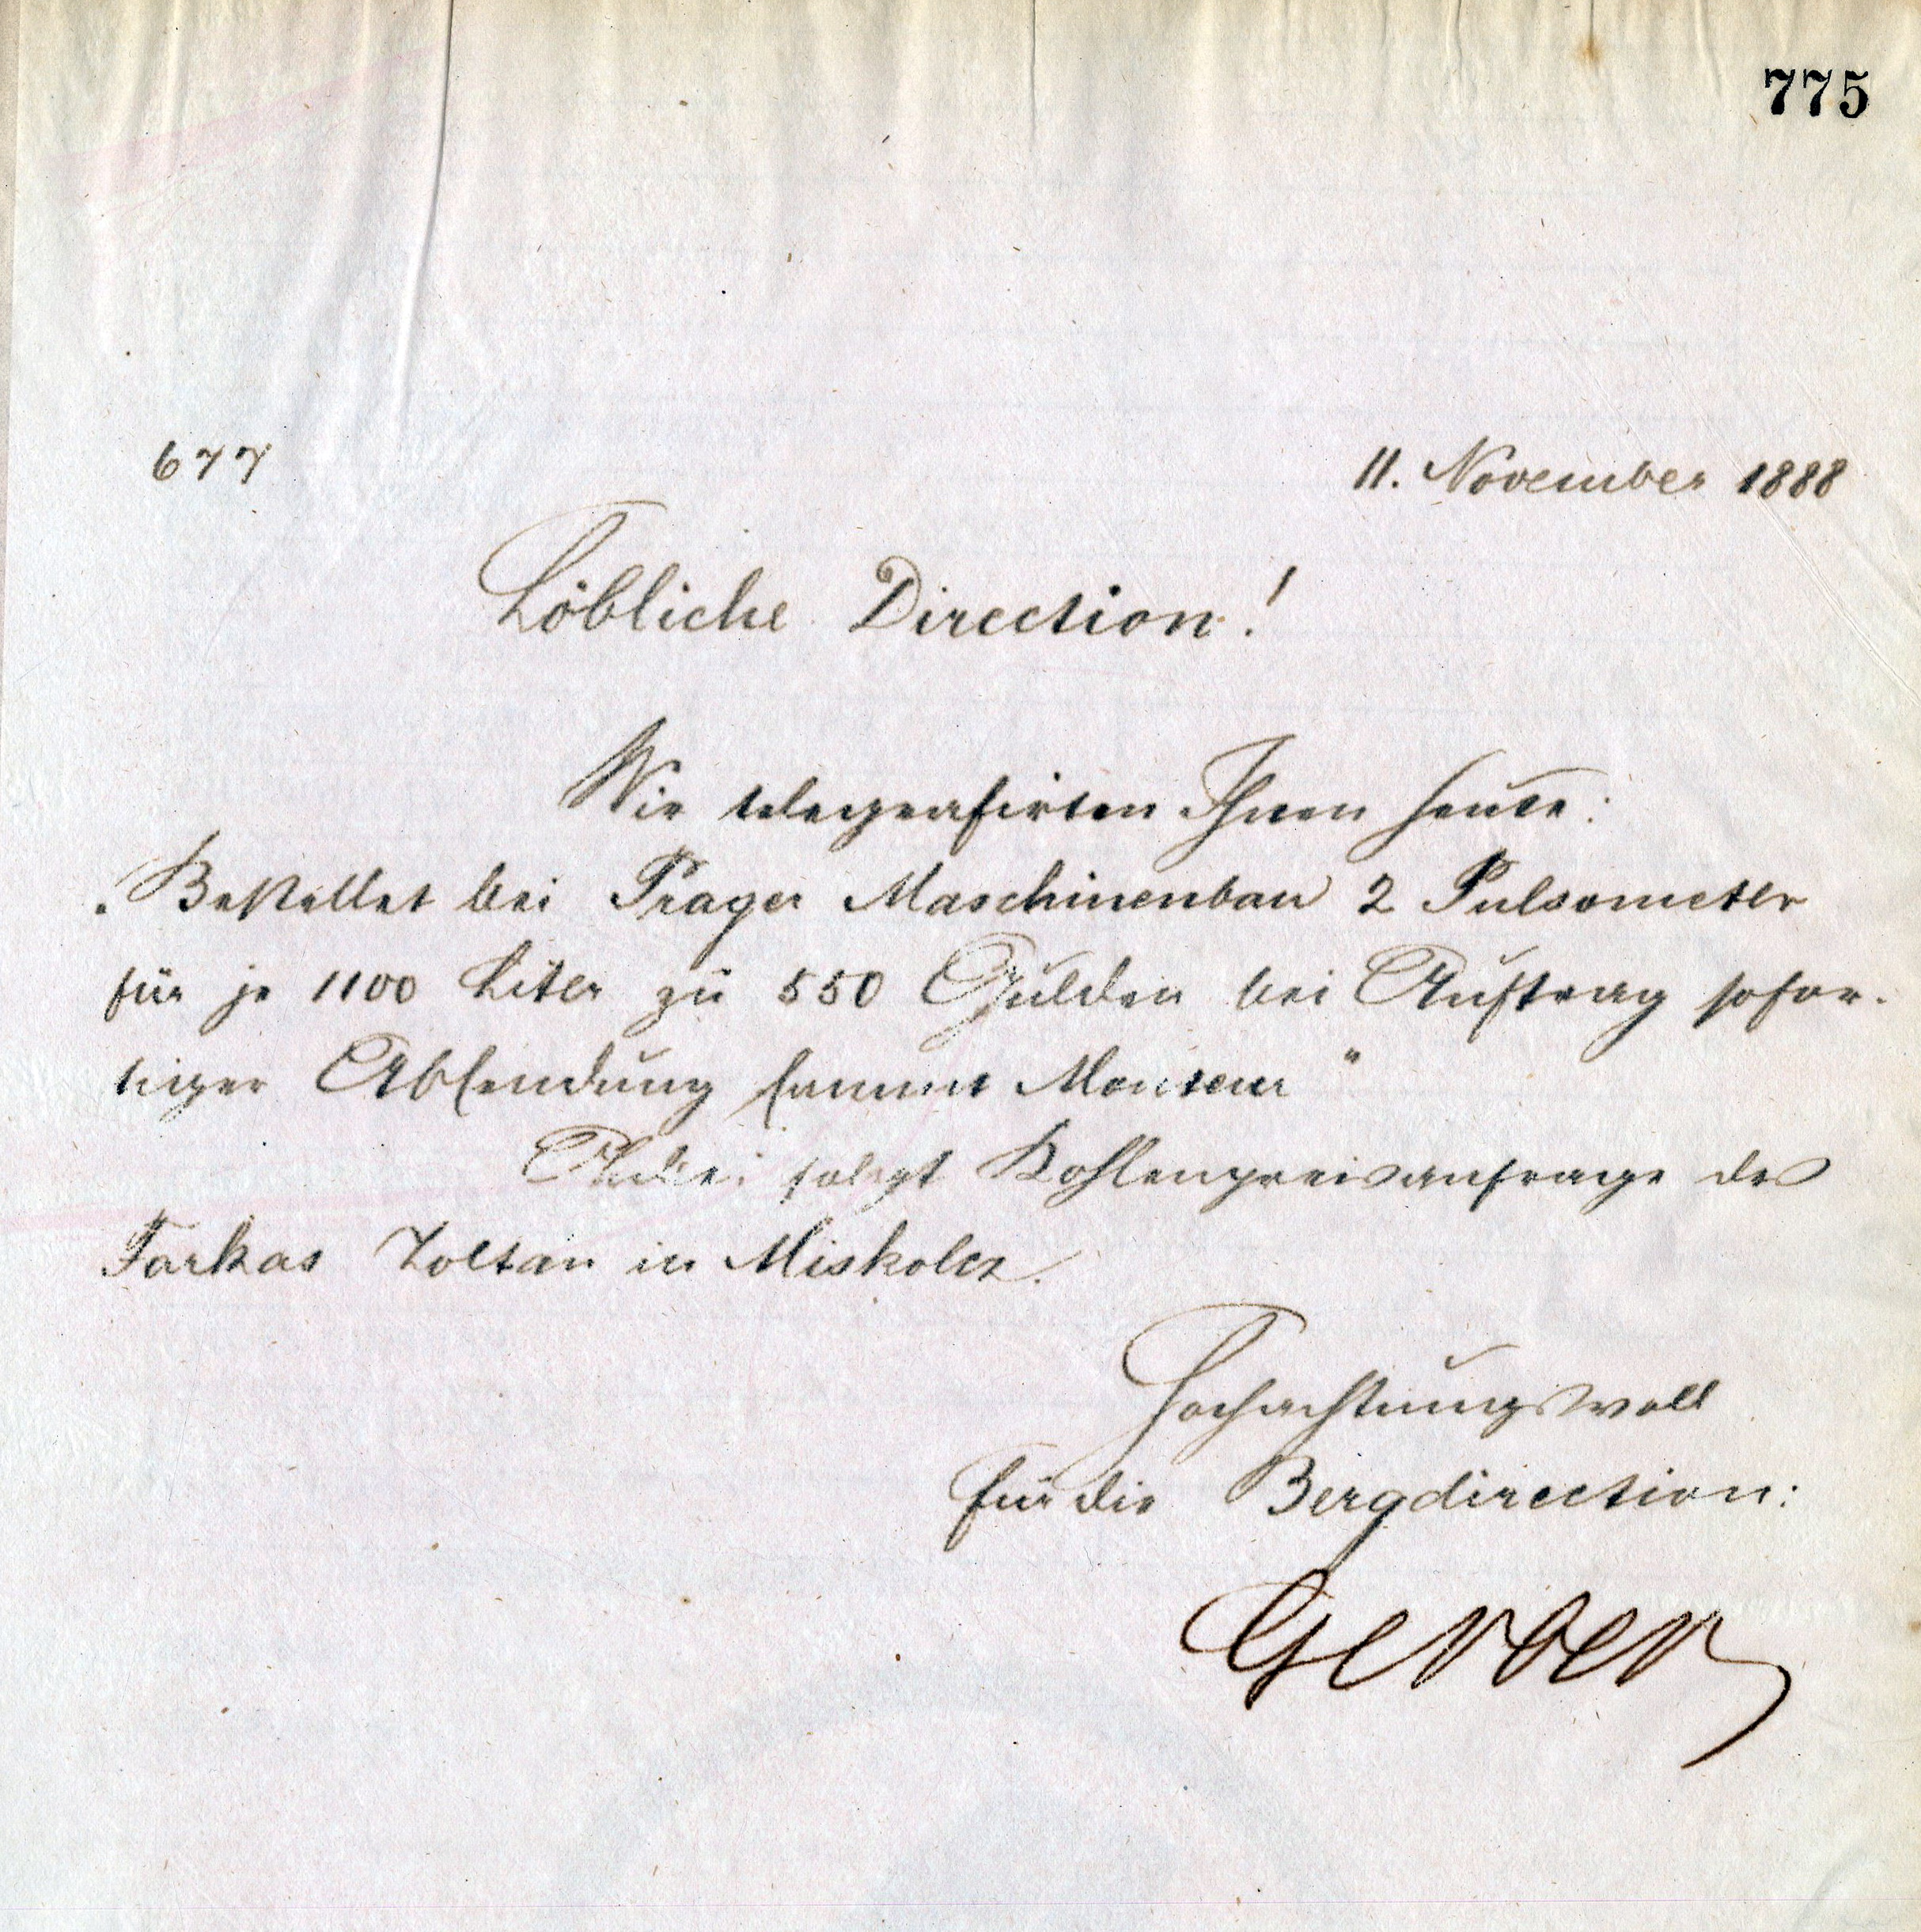 775
677
11. November 1888
Löbliche Direction!
Wir telegrafirten Ihnen heute:
"Bestellet bei Prager Maschinenbau 2 Pulsometer
für je 1100 Liter zu 550 Gulden bei Auftrag sofor-
tiger Absendung sammt Monteur"
folgt Kohlenpreisanfrage des
Farkas Zoltan in Miskolcz.
Hochachtungsvoll
für die Bergdirection:
Gerber